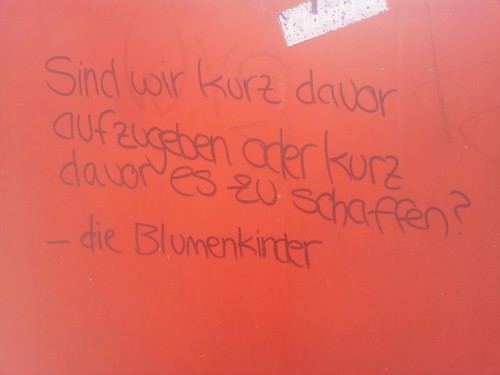 Sind wir kurz davor
aufzugeben oder kurz
davor es zu schaffen?
- die Blumenkinder